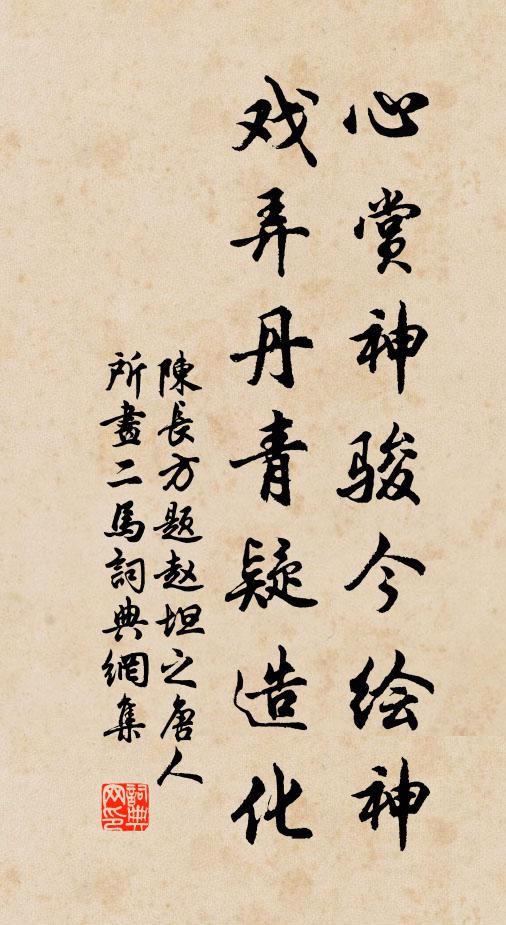 心赏神骏今绘神
戏弄丹青疑造化
陳長方題赵坦之唐人
所畫二馬詞典網集
詞典网印